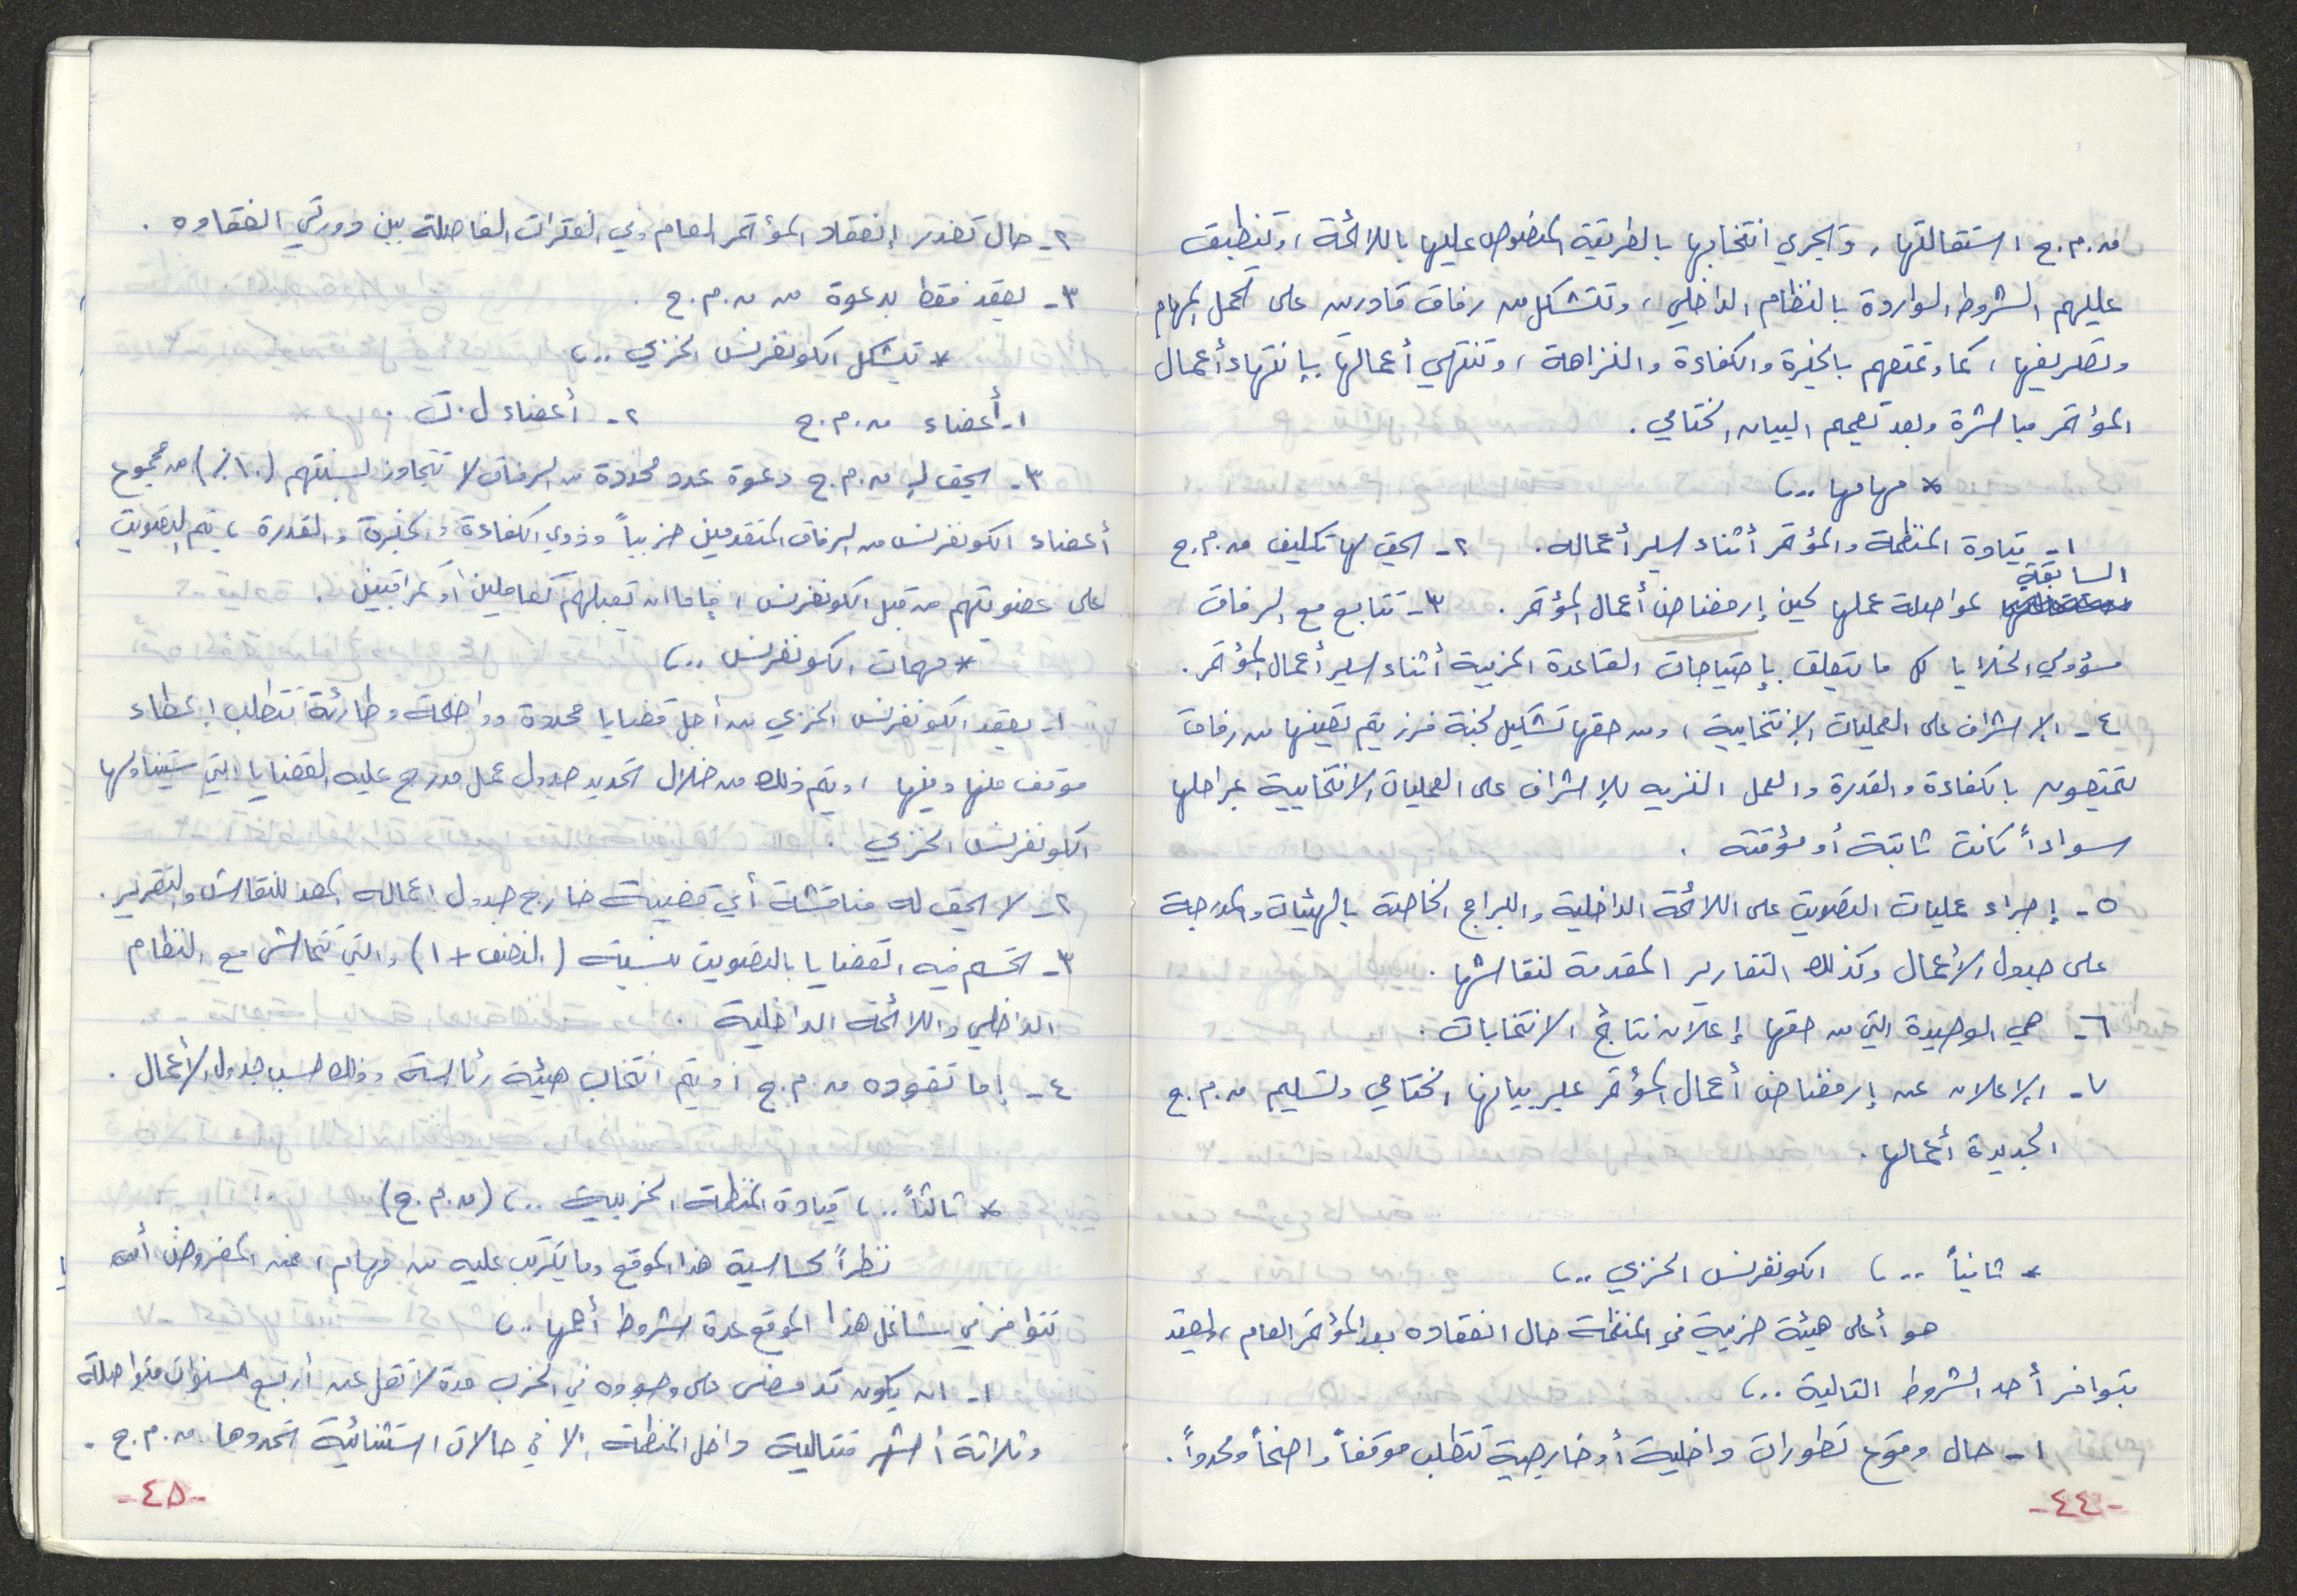 م.م.ج استقالتها، ويجري انتخابها بالطريقة المنصوص عليها باللائحة، وتنطبق
عليهم الشروط الواردة بالنظام الداخلي، وتتشكل من رفاق قادرين على تحمل المهام
وتصريفها، كما وتمتعهم بالخبرة والكفاءة والنزاهة، وتنتهي أعمالها بإنتهاء أعمال
المؤتمر مباشرة وبعد تعميم البيان الختامي.
* مهامها ..،
١- قيادة المنظمة والمؤتمر أثناء سير أعماله. ٢- يحق لها تكليف م.م.ج
السابقة
لمواصلة عملها لحين إرفضاض أعمال المؤتمر. ٣- تتابع مع الرفاق
مسؤولي الخلايا كل ما يتعلق بإحتياجات القاعدة الحزبية أثناء سير أعمال المؤتمر.
٤- الإشراف على العمليات الإنتخابية، ومن حقها تشكيل لجنة فرز يتم تعينها من رفاق
يتمتعون بالكفاءة والقدرة والعمل النزيه للإشراف على العمليات الانتخابية بمراحلها
سواءاً كانت ثابتة أو مؤقتة.
٥- إجراء عمليات التصويت على اللائحة الداخلية والبرامج الخاصة بالهيئات والمدرجة
على جدول الأعمال وكذلك التقارير المقدمة لنقاشها.
٦- هي الوحيدة التي من حقها إعلان نتائج الانتخابات.
٧- الإعلان عن إرفضاض أعمال المؤتمر عبر بيانها الختامي وتسليم م.م.ج
الجديدة أعمالها.
* ثانياً ..، الكونفرنس الحزبي ..،
هو أعلى هيئة حزبية في المنظمة حال انعقاده بعد المؤتمر العام، ويعقد
بتوافر أحد الشروط التالية ..،
١- حال وقوع تطورات داخلية أو خارجية تتطلب موقفاً واضحاً ومحدداً.
-٤٤-
٢- حال تعذر إنعقاد المؤتمر العام وفي الفترات الفاصلة بين دورتي انعقاده.
٣- يعقد فقط بدعوة من م.م.ج.
* يتشكل الكونفرنس الحزبي ..،
١- أعضاء م.م.ج ٢- أعضاء ل.ت.
٣- يحق لـ م.م.ج دعوة عدد محددة من الرفاق لا تتجاوز نسبتهم (١٠٪) من مجموع
أعضاء الكونفرنس من الرفاق المتقدمين حزبياً وذوي الكفاءة والخبرة والقدرة، يتم التصويت
على عضويتهم من قبل الكونفرنس، فإما ان تقبلهم كعاملين أو كمراقبين.
* مهمات الكونفرنس ..،
١- يعقد الكونفرنس الحزبي من أجل قضايا محددة وواضحة وطارئة تتطلب إعطاء
موقف منها وفيها، ويتم ذلك من خلال تحديد جدول عمل مدرج عليه القضايا التي سيتناولها
الكونفرنس الحزبي.
٢- لا يحق له مناقشة أي قضية خارج جدول اعماله المعد للنقاش والتقرير.
٣- تحسم فيه القضايا بالتصويت بنسبة (النصف + ١) والتي تتماشى مع النظام
الداخلي واللائحة الداخلية.
٤- إما تقوده م.م.ج أو يتم انتخاب هيئة رئاسة وذلك حسب جدول الأعمال.
* ثالثاً ..، قيادة المنظمة الحزبية ..، (م.م.ج)
نظراً لحساسية هذا الموقع وما يترتب عليه من مهام، فمن المفروض أن
تتوافر في شاغل هذا الموقع عدة شروط أهمها ..،
١- ان يكون قد مضى على وجوده في الحزب مدة لا تقل عن أربع سنوات متواصلة
وثلاثة أشهر متتالية داخل المنظمة إلا في حالات استثنائية تحددها م.م.ج.
-٤٥-